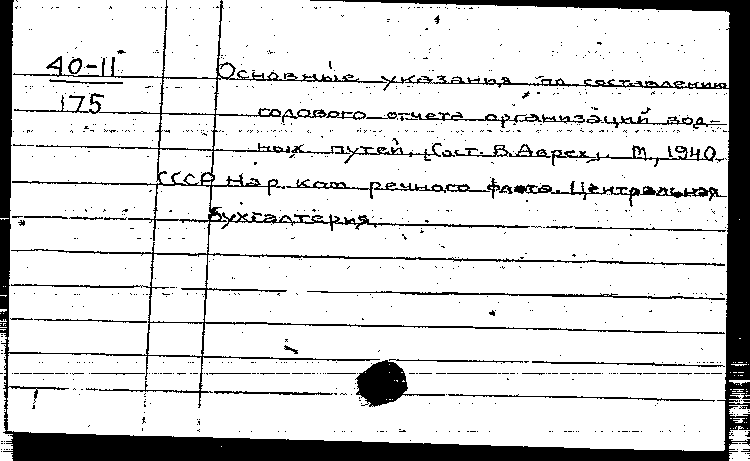 40-11
175
Основные указания по составлению
годового отчета организаций вод-
ных путей. [Сост. В. Аарех]. М., 1940.
СССР Нар. ком речного флота. Центральная
бухгалтерия.